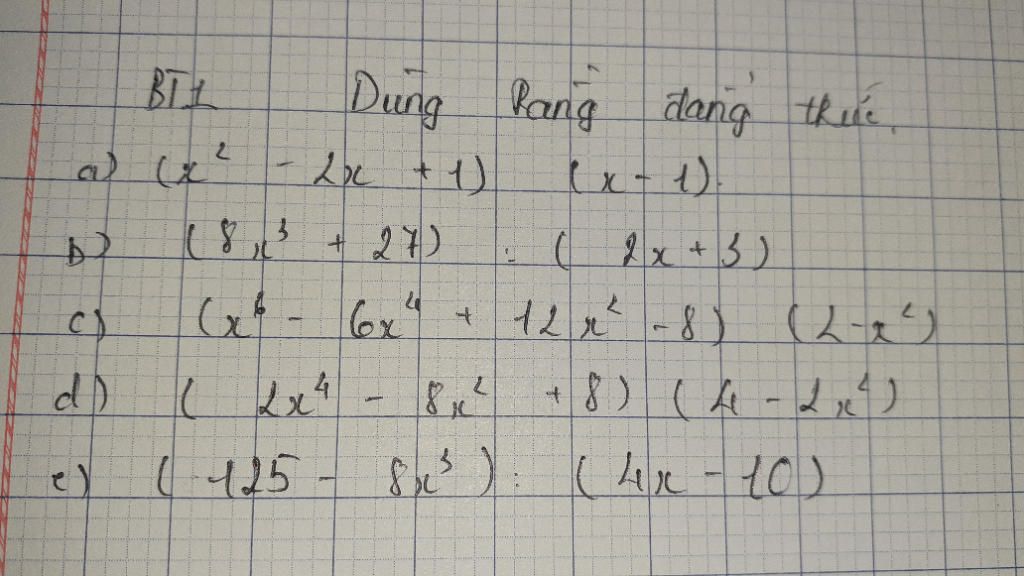 BT1 Dùng hằng đẳng thức.
a) (x² - 2x + 1) (x - 1).
b) (8x³ + 27) : ( 2x + 3)
c) (x⁶ - 6x⁴ + 12x² - 8) (2 - x²)
d) ( 2x⁴ - 8x² + 8) (4 - 2x²)
e) ( 125 - 8x³ ) : ( 4x - 10)